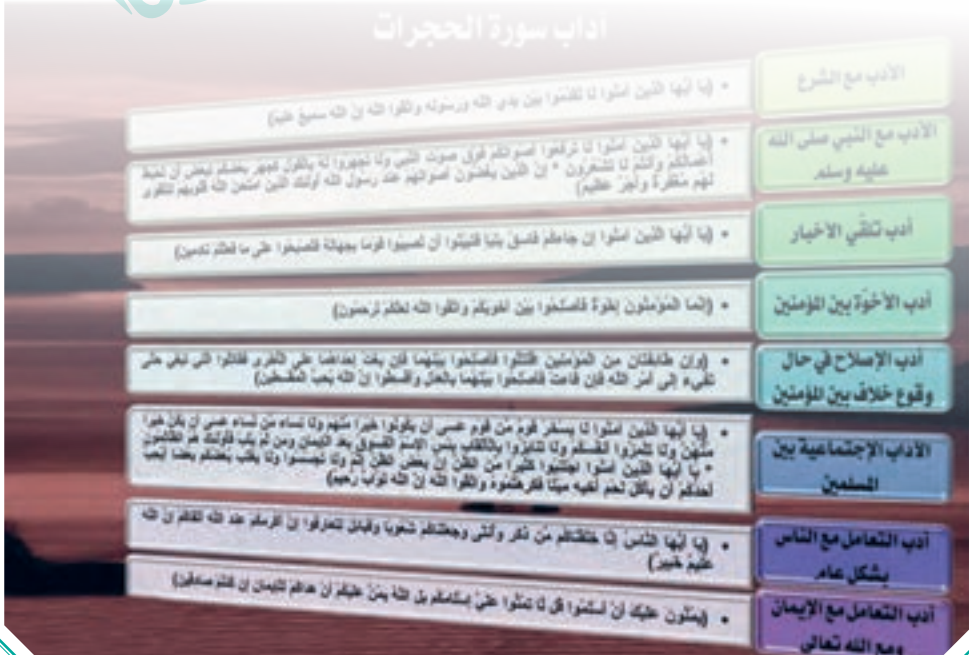 آداب سورة الحجرات
الأدب مع الشرع
• (يا أيها الذين آمنوا لا تقدموا بين يدي الله ورسوله واتقوا الله إن الله سميع عليم)
الأدب مع النبي صلى الله
عليه وسلم
• (يا أيها الذين آمنوا لا ترفعوا أصواتكم فوق صوت النبي ولا تجهروا له بالقول كجهر بعضكم لبعض أن تحبط
أعمالكم وأنتم لا تشعرون * إن الذين يغضون أصواتهم عند رسول الله أولئك الذين امتحن الله قلوبهم للتقوى
لهم مغفرة وأجر عظيم)
أدب تلقّي الأخبار
• (يا أيها الذين آمنوا إن جاءكم فاسق بنبإ فتبينوا أن تصيبوا قوما بجهالة فتصبحوا على ما فعلتم نادمين)
أدب الأخوّة بين المؤمنين
• (إنما المؤمنون إخوة فأصلحوا بين أخويكم واتقوا الله لعلكم ترحمون)
أدب الإصلاح في حال
وقوع خلاف بين المؤمنين
• (وإن طائفتان من المؤمنين اقتتلوا فأصلحوا بينهما فإن بغت إحداهما على الأخرى فقاتلوا التي تبغي حتى
تفيء إلى أمر الله فإن فاءت فأصلحوا بينهما بالعدل وأقسطوا إن الله يحب المقسطين)
الآداب الإجتماعية بين
المسلمين
• (يا أيها الذين آمنوا لا يسخر قوم من قوم عسى أن يكونوا خيرا منهم ولا نساء من نساء عسى أن يكن خيرا
منهن ولا تلمزوا أنفسكم ولا تنابزوا بالألقاب بئس الاسم الفسوق بعد الإيمان ومن لم يتب فأولئك هم الظالمون
* يا أيها الذين آمنوا اجتنبوا كثيرا من الظن إن بعض الظن إثم ولا تجسسوا ولا يغتب بعضكم بعضا أيحب
أحدكم أن يأكل لحم أخيه ميتا فكرهتموه واتقوا الله إن الله تواب رحيم)
أدب التعامل مع الناس
بشكل عام
• (يا أيها الناس إنا خلقناكم من ذكر وأنثى وجعلناكم شعوبا وقبائل لتعارفوا إن أكرمكم عند الله أتقاكم إن الله
عليم خبير)
أدب التعامل مع الإيمان
ومع الله تعالى
• (يمنون عليك أن أسلموا قل لا تمنوا علي إسلامكم بل الله يمن عليكم أن هداكم للإيمان إن كنتم صادقين)